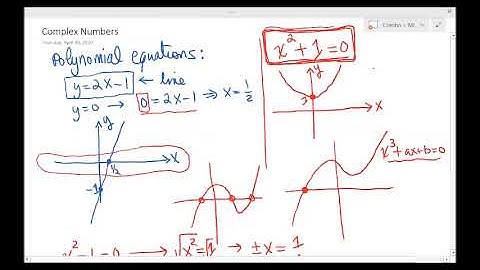 Complex Numbers
Polynomial equations:
y=2x-1 ← line
y=0 → 0=2x-1 ⇒ x=1/2
y
x
1/2
-1
x²+1=0
y
x
x³+ax+b=0
x²-1=0 → √x²=√1 → ±x=